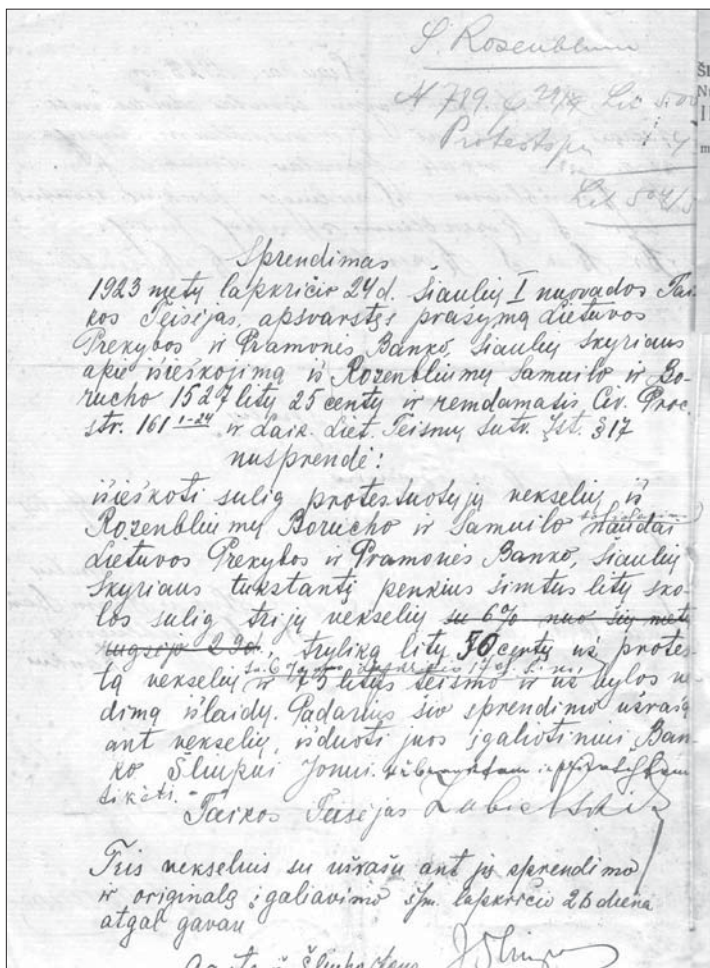 S. Rosenblum
N 789.
Protestspe
Sprendimas
1923 metų lapkričio 24 d. Šiaulių I nuovados Tai-
kos Teisėjas, apsvarstęs prašymą Lietuvos
Prekybos ir Pramonės Banko, Šiaulių Skyriaus
apie išieškojimą iš Rozenbliumų Samuilo ir Bo-
rucho 1527 litų 25 centų ir remdamasis Civ. Proc.
str. 161 1-24 ir Laik. Liet. Teismų Sutv. Įst. § 17
nusprendė:
išieškoti sulig protestuotųjų vekselių iš
Rozenbliumų Borucho ir Samuilo solidariniai naudai
Lietuvos Prekybos ir Pramonės Banko, Šiaulių
Skyriaus tukstantį penkius šimtus litų sko-
los sulig trijų vekselių su 6% nuo šių metų
rugsėjo 29d, tryliką litų 50 centų už protes-
su 6% nuo lapkričio 17 d. š. m.
tą vekselių ir 73 litus teismo ir už bylos ve-
dimą išlaidų. Padarius šio sprendimo užrašą
ant vekselių, išduoti juos įgaliotiniui Ban-
ko Šliupui Jonui.
tikėti.
Taikos Teisėjas
Tris vekselius su užrašu ant jų sprendimo
ir originalą įgaliavimo š/m. lapkričio 26 dieną
atgal gavau